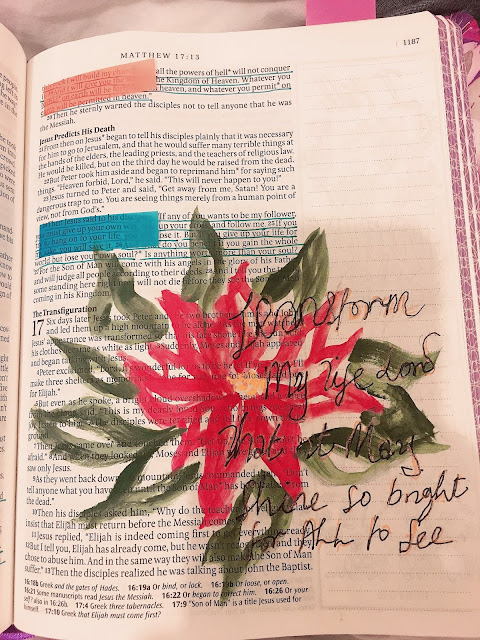 MATTHEW 17:13
1187
all the powers of hell* will not conquer
the Kingdom of Heaven. Whatever you
heaven, and whatever you permit* on
will be permitted in heaven."
20Then he sternly warned the disciples not to tell anyone that he was
the Messiah.
Jesus Predicts His Death
21From then on Jesus* began to tell his disciples plainly that it was necessary
for him to go to Jerusalem, and that he would suffer many terrible things at
the hands of the elders, the leading priests, and the teachers of religious law.
He would be killed, but on the third day he would be raised from the dead.
22But Peter took him aside and began to reprimand him* for saying such
things. "Heaven forbid, Lord," he said. "This will never happen to you!"
23Jesus turned to Peter and said, "Get away from me, Satan! You are a
dangerous trap to me. You are seeing things merely from a human point of
view, not from God's."
24Then Jesus said to his disciples, "If any of you wants to be my follower,
you must give up your own way, take up your cross, and follow me. 25If you
try to hang on to your life, you will lose it. But if you give up your life for
my sake, you will save it. 26And what do you benefit if you gain the whole
world but lose your own soul?* Is anything worth more than your soul?
27For the Son of Man will come with his angels in the glory of his Father
and will judge all people according to their deeds. 28And I tell you the truth,
some standing here right now will not die before they see the Son of Man
coming in his Kingdom."
The Transfiguration
17 Six days later Jesus took Peter and the two brothers, James and John,
and led them up a high mountain to be alone.
Jesus' appearance was transformed so that his face shone like the sun, and
his clothes became as white as light. Moses and Elijah appeared
and began talking with Jesus.
4Peter exclaimed, "Lord, it's wonderful for us to be here! If you want, I'll
make three shelters as memorials*—one for you, one for Moses, and one
for Elijah."
5But even as he spoke, a bright cloud overshadowed them, and a voice
from the cloud said, "This is my dearly loved Son, who brings me great joy.
Listen to him." 6The disciples were terrified and fell face down on the
ground.
7Then Jesus came over and touched them. "Get up," he said. "Don't be
afraid." 8And when they looked up, Moses and Elijah were gone, and they
saw only Jesus.
9As they went back down the mountain, Jesus commanded them, "Don't
tell anyone what you have seen until the Son of Man* has been raised from
the dead."
10Then his disciples asked him, "Why do the teachers of religious law
insist that Elijah must return before the Messiah comes?*"
11Jesus replied, "Elijah is indeed coming first to get everything ready.
12But I tell you, Elijah has already come, but he wasn't recognized, and they
chose to abuse him. And in the same way they will also make the Son of Man
suffer." 13Then the disciples realized he was talking about John the Baptist.
16:18b Greek and the gates of Hades. 16:19a Or bind, or lock. 16:19b Or loose, or open.
16:21 Some manuscripts read Jesus the Messiah. 16:22 Or began to correct him. 16:26 Or your
self? also in 16:26b. 17:4 Greek three tabernacles. 17:9 "Son of Man" is a title Jesus used for
himself. 17:10 Greek that Elijah must come first?
Transform
My life Lord
that it May
shine so bright
for All to see